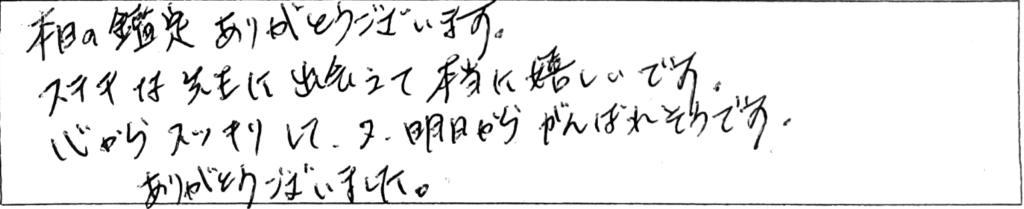 本日の鑑定ありがとうございます。
ステキな先生に出会えて本当に嬉しいです。
心からスッキリして、又、明日からがんばれそうです。
ありがとうございました。